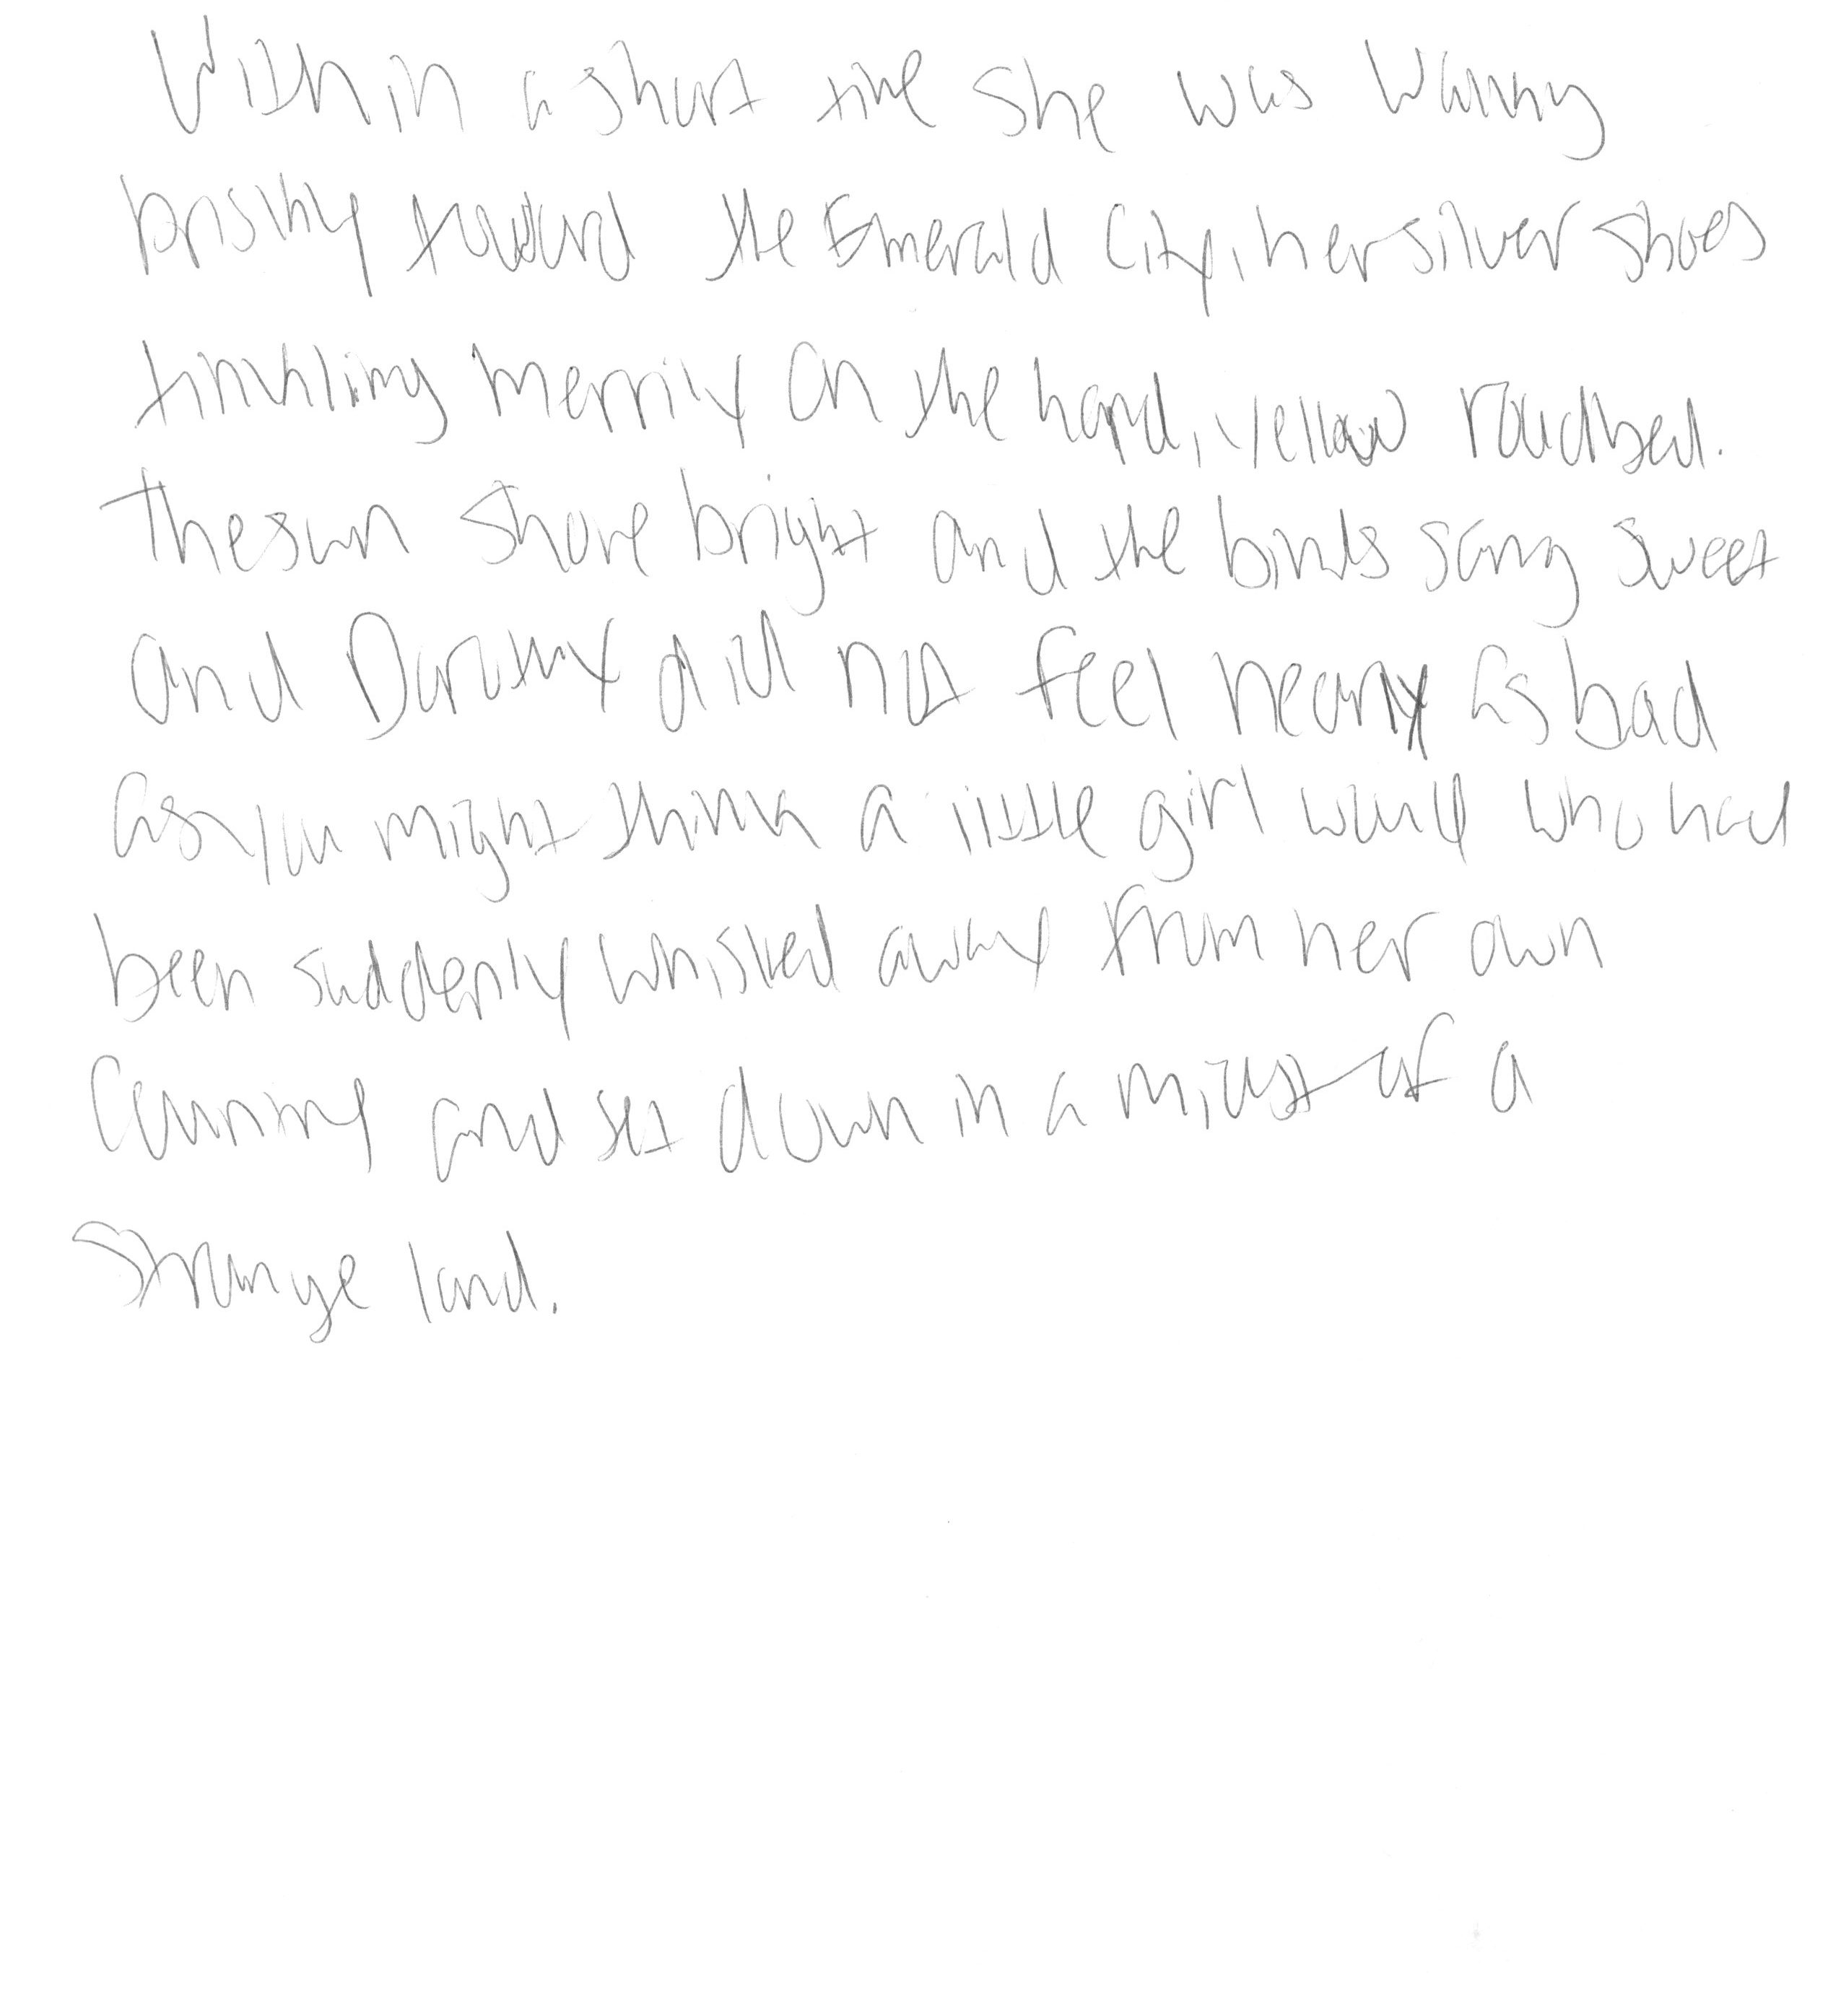 Within a short time she was walking
briskly toward the Emerald City, her silver shoes
tinkling merrily on the hard, yellow roadbed.
The sun shone bright and the birds sang sweet
and Dorothy did not feel nearly as bad
as you might think a little girl would who had
been suddenly whisked away from her own
country and set down in a midst of a
strange land.